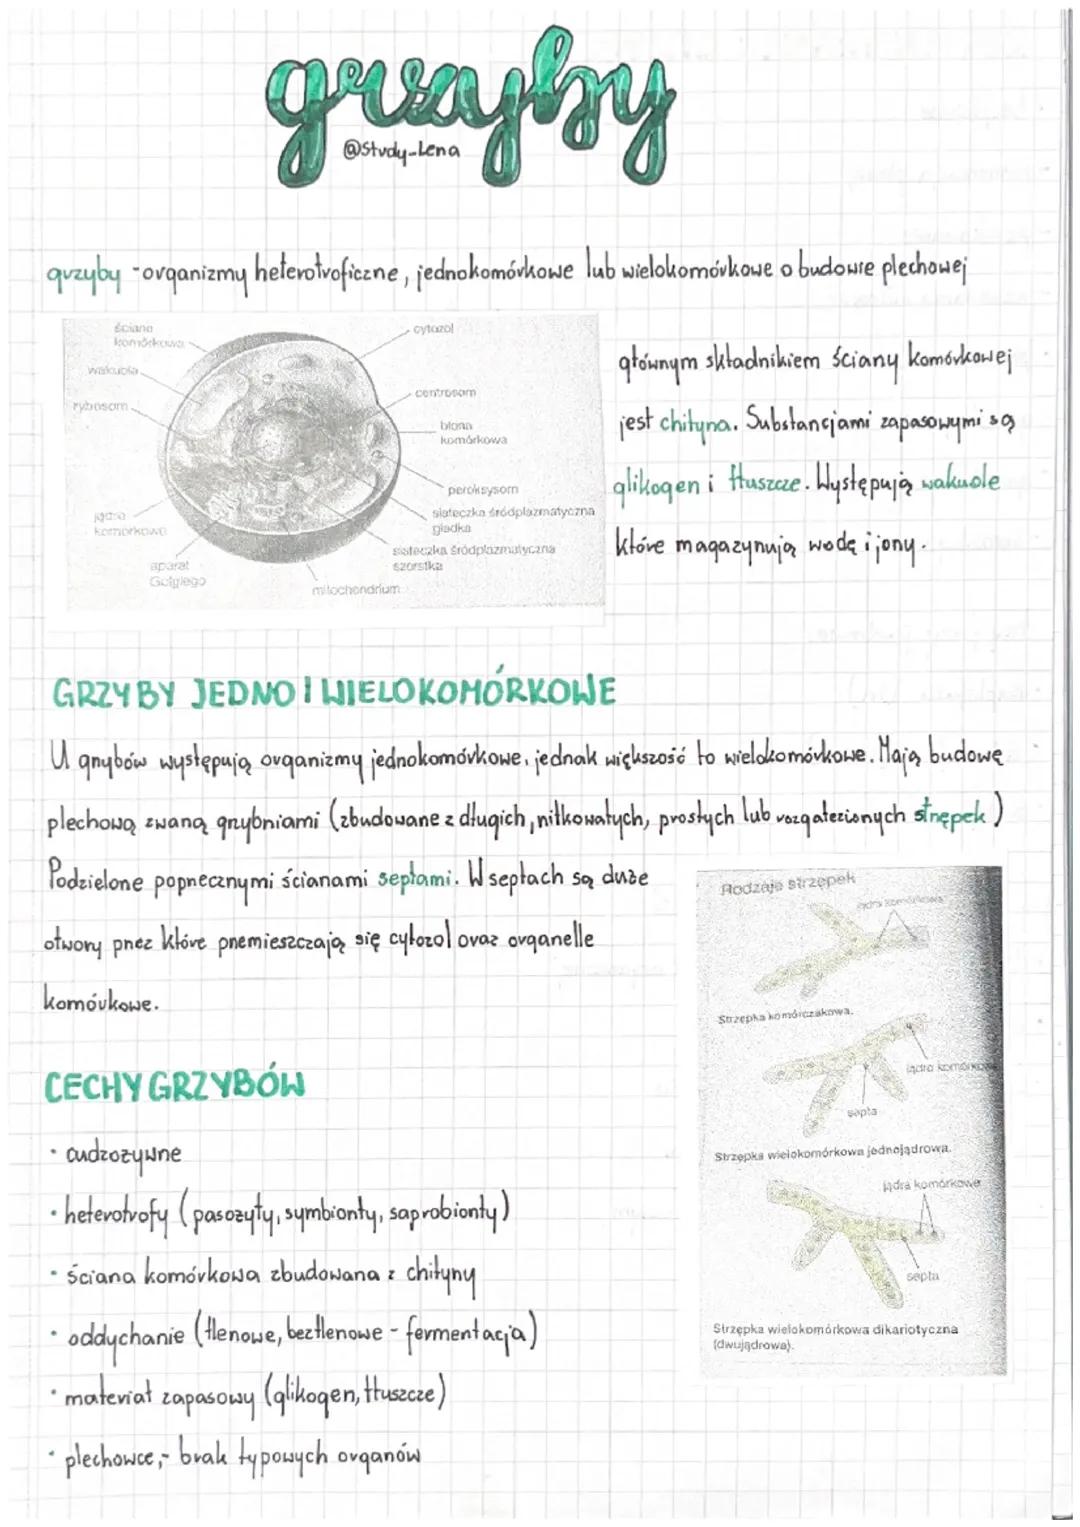 grzyby
@Study-Lena
grzyby - organizmy heterotroficzne, jednokomórkowe lub wielokomórkowe o budowie plechowej
ściana komórkowa
cytozol
wakuola
rybosom
centrosom
błona komórkowa
peroksysom
siateczka śródplazmatyczna gładka
jądro komórkowe
siateczka śródplazmatyczna szorstka
aparat Golgiego
mitochondrium
głównym składnikiem ściany komórkowej
jest chityna. Substancjami zapasowymi są
glikogen i tłuszcze. Występują wakuole
które magazynują wodę i jony.
GRZYBY JEDNO I WIELOKOMÓRKOWE
U grzybów występują organizmy jednokomórkowe, jednak większość to wielokomórkowe. Mają budowę
plechową zwaną grzybniami (zbudowane z długich, nitkowatych, prostych lub rozgałęzionych strzępek)
Podzielone poprzecznymi ścianami septami. W septach są duże
otwory przez które przemieszczają się cytozol oraz organelle
komórkowe.
Rodzaje strzępek
jądra komórkowe
Strzępka komórczakowa.
jądra komórkowe
septa
Strzępka wielokomórkowa jednojądrowa.
jądra komórkowe
septa
Strzępka wielokomórkowa dikariotyczna
(dwujądrowa).
CECHY GRZYBÓW
• cudzożywne
• heterotrofy (pasożyty, symbionty, saprobionty)
• ściana komórkowa zbudowana z chityny
• oddychanie (tlenowe, beztlenowe - fermentacja)
• materiał zapasowy (glikogen, tłuszcze)
• plechowce,- brak typowych organów